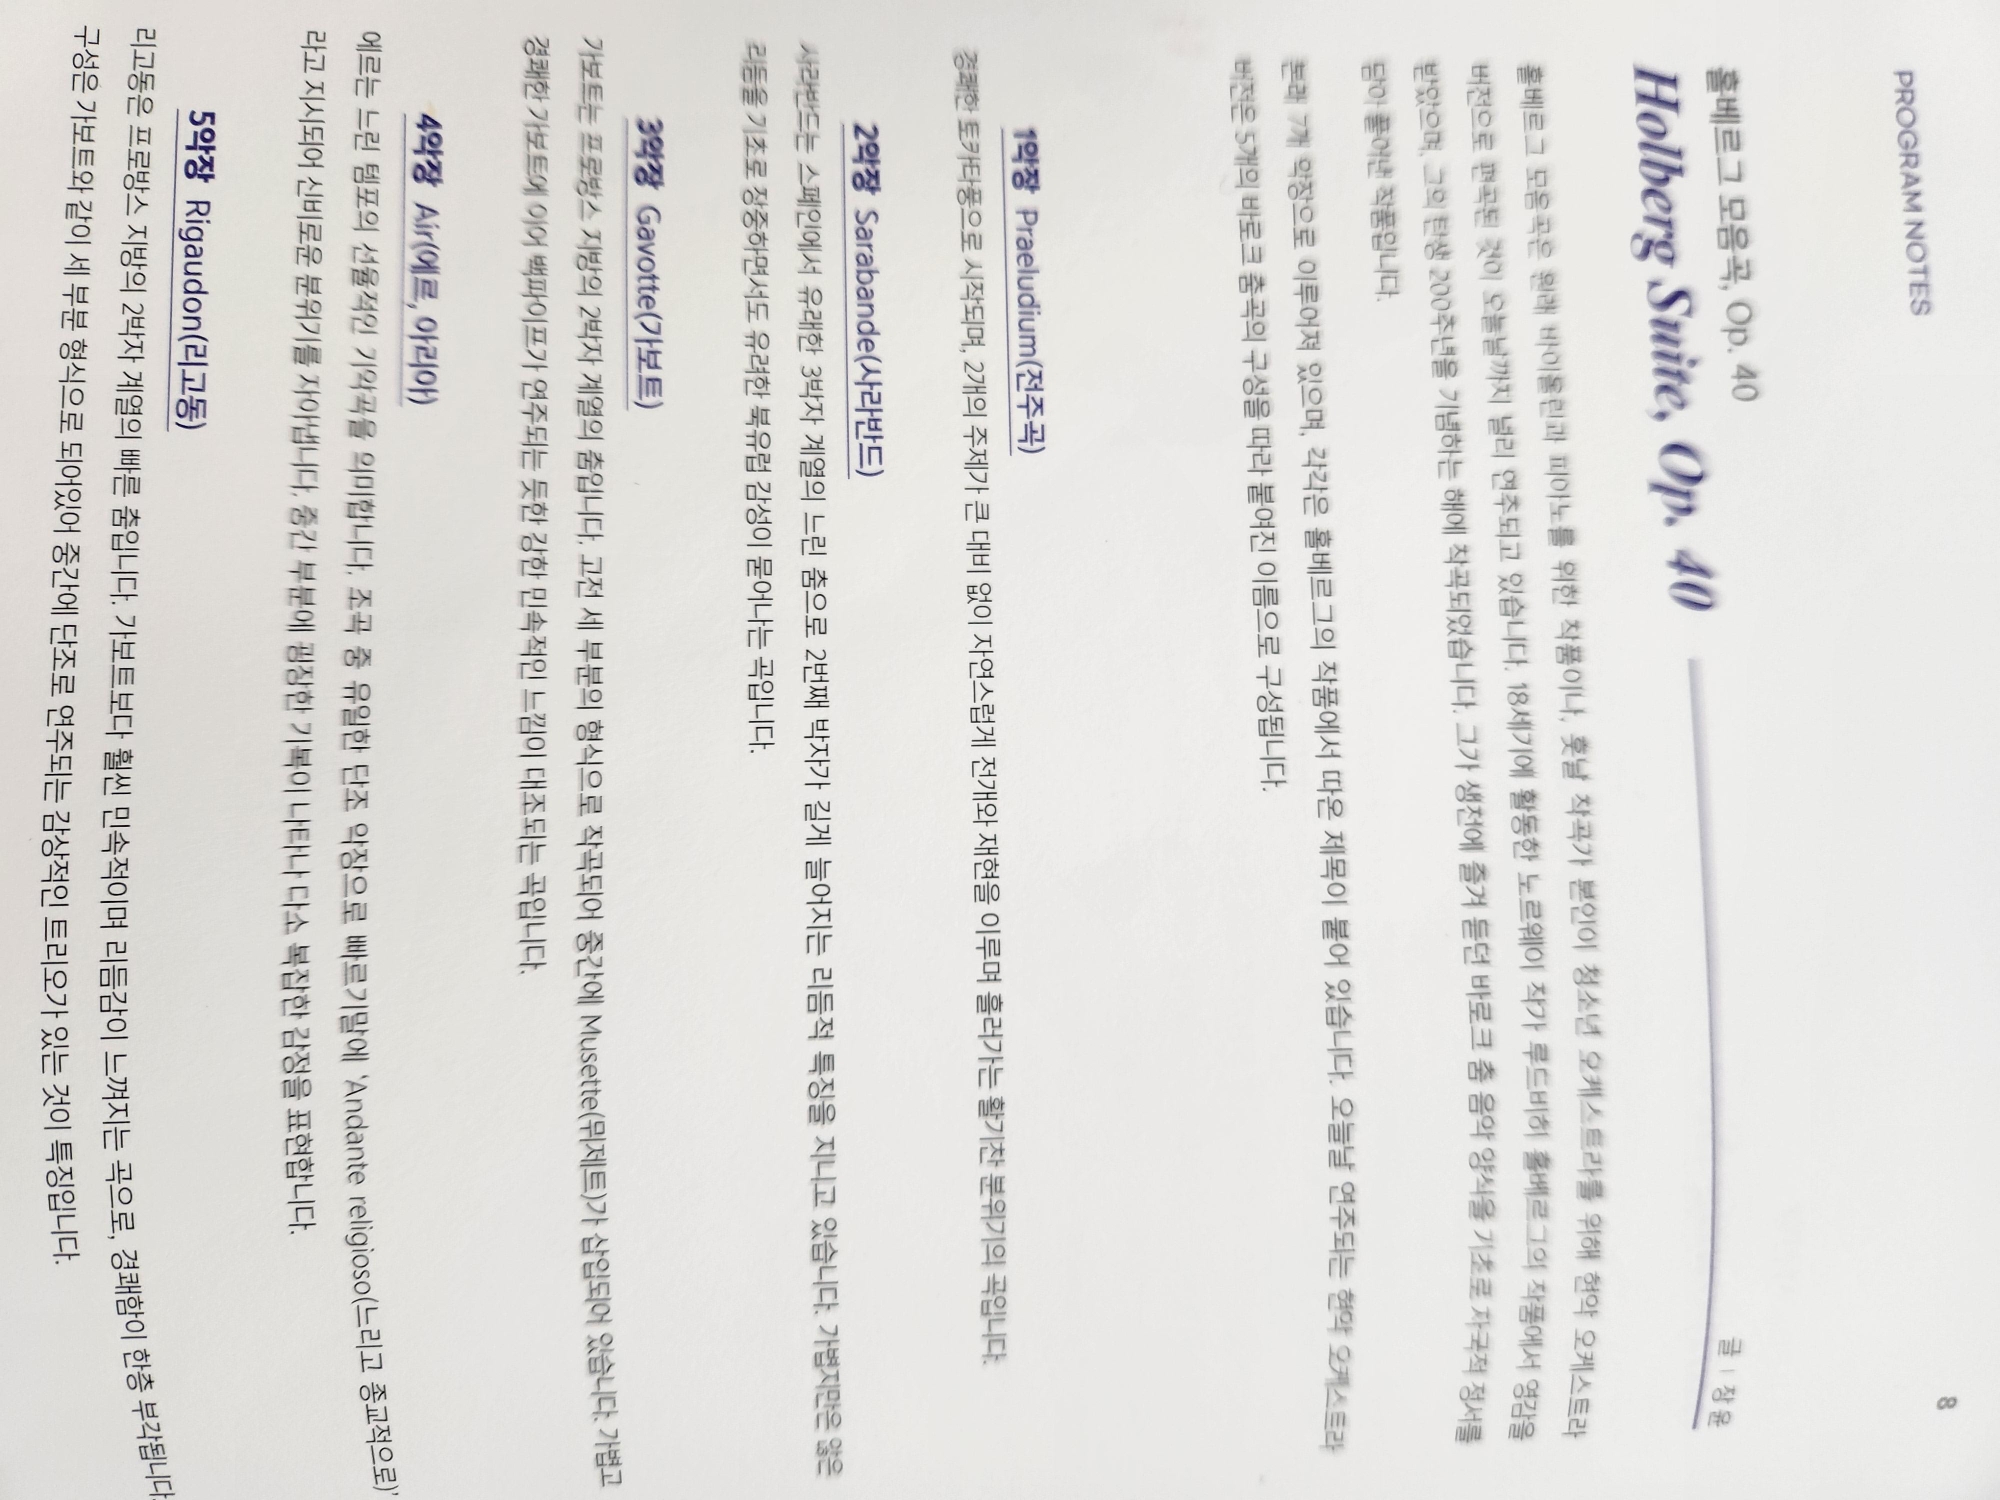 PROGRAM NOTES
8
홀베르그 모음곡, Op. 40
Holberg Suite, Op. 40
글 | 장 윤
홀베르그 모음곡은 원래 바이올린과 피아노를 위한 작품이나, 훗날 작곡가 본인이 청소년 오케스트라를 위해 현악 오케스트라
버전으로 편곡된 것이 오늘날까지 널리 연주되고 있습니다. 18세기에 활동한 노르웨이 작가 루드비히 홀베르그의 작품에서 영감을
받았으며, 그의 탄생 200주년을 기념하는 해에 작곡되었습니다. 그가 생전에 즐겨 듣던 바로크 춤 음악 양식을 기초로 자국적 정서를
담아 풀어낸 작품입니다.
본래 7개 악장으로 이루어져 있으며, 각각은 홀베르그의 작품에서 따온 제목이 붙어 있습니다. 오늘날 연주되는 현악 오케스트라
버전은 5개의 바로크 춤곡의 구성을 따라 붙여진 이름으로 구성됩니다.
1악장 Praeludium(전주곡)
경쾌한 토카타풍으로 시작되며, 2개의 주제가 큰 대비 없이 자연스럽게 전개와 재현을 이루며 흘러가는 활기찬 분위기의 곡입니다.
2악장 Sarabande(사라반드)
사라반드는 스페인에서 유래한 3박자 계열의 느린 춤으로 2번째 박자가 길게 늘어지는 리듬적 특징을 지니고 있습니다. 가볍지만은 않은
리듬을 기초로 장중하면서도 유려한 북유럽 감성이 묻어나는 곡입니다.
3악장 Gavotte(가보트)
가보트는 프로방스 지방의 2박자 계열의 춤입니다. 고전 세 부분의 형식으로 작곡되어 중간에 Musette(뮈제트)가 삽입되어 있습니다. 가볍고
경쾌한 가보트에 이어 백파이프가 연주되는 듯한 강한 민속적인 느낌이 대조되는 곡입니다.
4악장 Air(에르, 아리아)
에르는 느린 템포의 선율적인 기악곡을 의미합니다. 조곡 중 유일한 단조 악장으로 빠르기말에 'Andante religioso(느리고 종교적으로)'
라고 지시되어 신비로운 분위기를 자아냅니다. 중간 부분에 굉장한 기복이 나타나 다소 복잡한 감정을 표현합니다.
5악장 Rigaudon(리고동)
리고동은 프로방스 지방의 2박자 계열의 빠른 춤입니다. 가보트보다 훨씬 민속적이며 리듬감이 느껴지는 곡으로, 경쾌함이 한층 부각됩니다.
구성은 가보트와 같이 세 부분 형식으로 되어있어 중간에 단조로 연주되는 감상적인 트리오가 있는 것이 특징입니다.